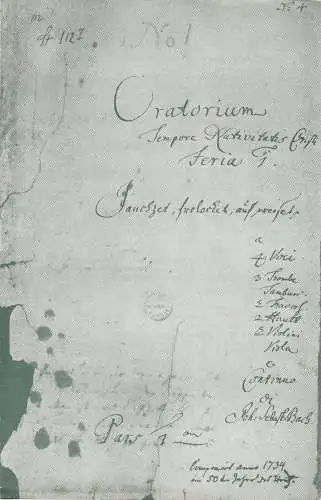 No 4
No 1
Oratorium
Tempore Nativitatis Christi
Feria 1.
Jauchzet, frolocket, auf preiset.
a
4 Voci.
3 Trombe
Tamburi
2 Travers.
2 Hautb.
2 Violini
Viola
e
Continuo
di
Joh. Sebast. Bach
Pars 1
anno 1734
50